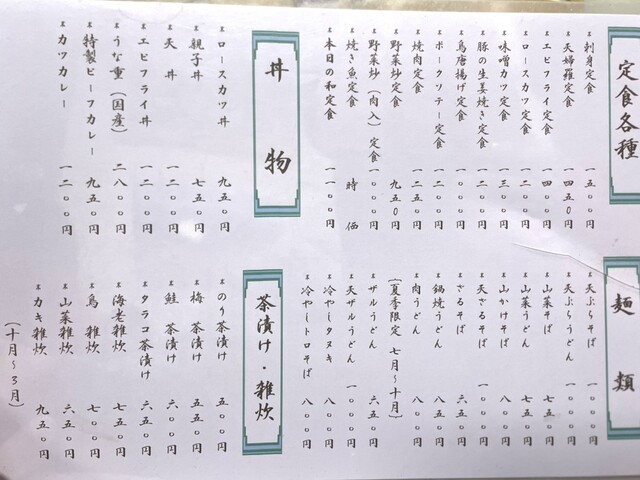 定食各種
刺身定食 一五〇〇円
天婦羅定食 一四五〇円
エビフライ定食 一四〇〇円
ロースカツ定食 一二〇〇円
味噌カツ定食 一三〇〇円
豚の生姜焼き定食 一二〇〇円
鳥唐揚げ定食 一〇〇〇円
ポークソテー定食 一二〇〇円
焼肉定食 一二五〇円
野菜炒定食 九五〇円
野菜炒（肉入）定食 一〇〇〇円
焼き魚定食 時価
本日の和定食 一一〇〇円
丼物
ロースカツ丼 九五〇円
親子丼 七五〇円
天丼 一二〇〇円
エビフライ丼 一二〇〇円
うな重（国産） 二八〇〇円
特製ビーフカレー 九五〇円
カツカレー 一二〇〇円
麺類
天ぷらそば 一〇〇〇円
天ぷらうどん 一〇〇〇円
山菜そば 七五〇円
山菜うどん 七五〇円
山かけそば 八〇〇円
天ざるそば 一〇〇〇円
ざるそば 六五〇円
鍋焼うどん 八五〇円
肉うどん 八〇〇円
（夏季限定 七月～十月）
ザルうどん 六五〇円
天ザルうどん 一〇〇〇円
冷やしタヌキ 八〇〇円
冷やしトロそば 八〇〇円
茶漬け・雑炊
のり茶漬け 五〇〇円
梅 茶漬け 五五〇円
鮭 茶漬け 六〇〇円
タラコ茶漬け 六五〇円
海老雑炊 七五〇円
鳥 雑炊 七〇〇円
山菜雑炊 六五〇円
カキ雑炊 九五〇円
（十月～3月）